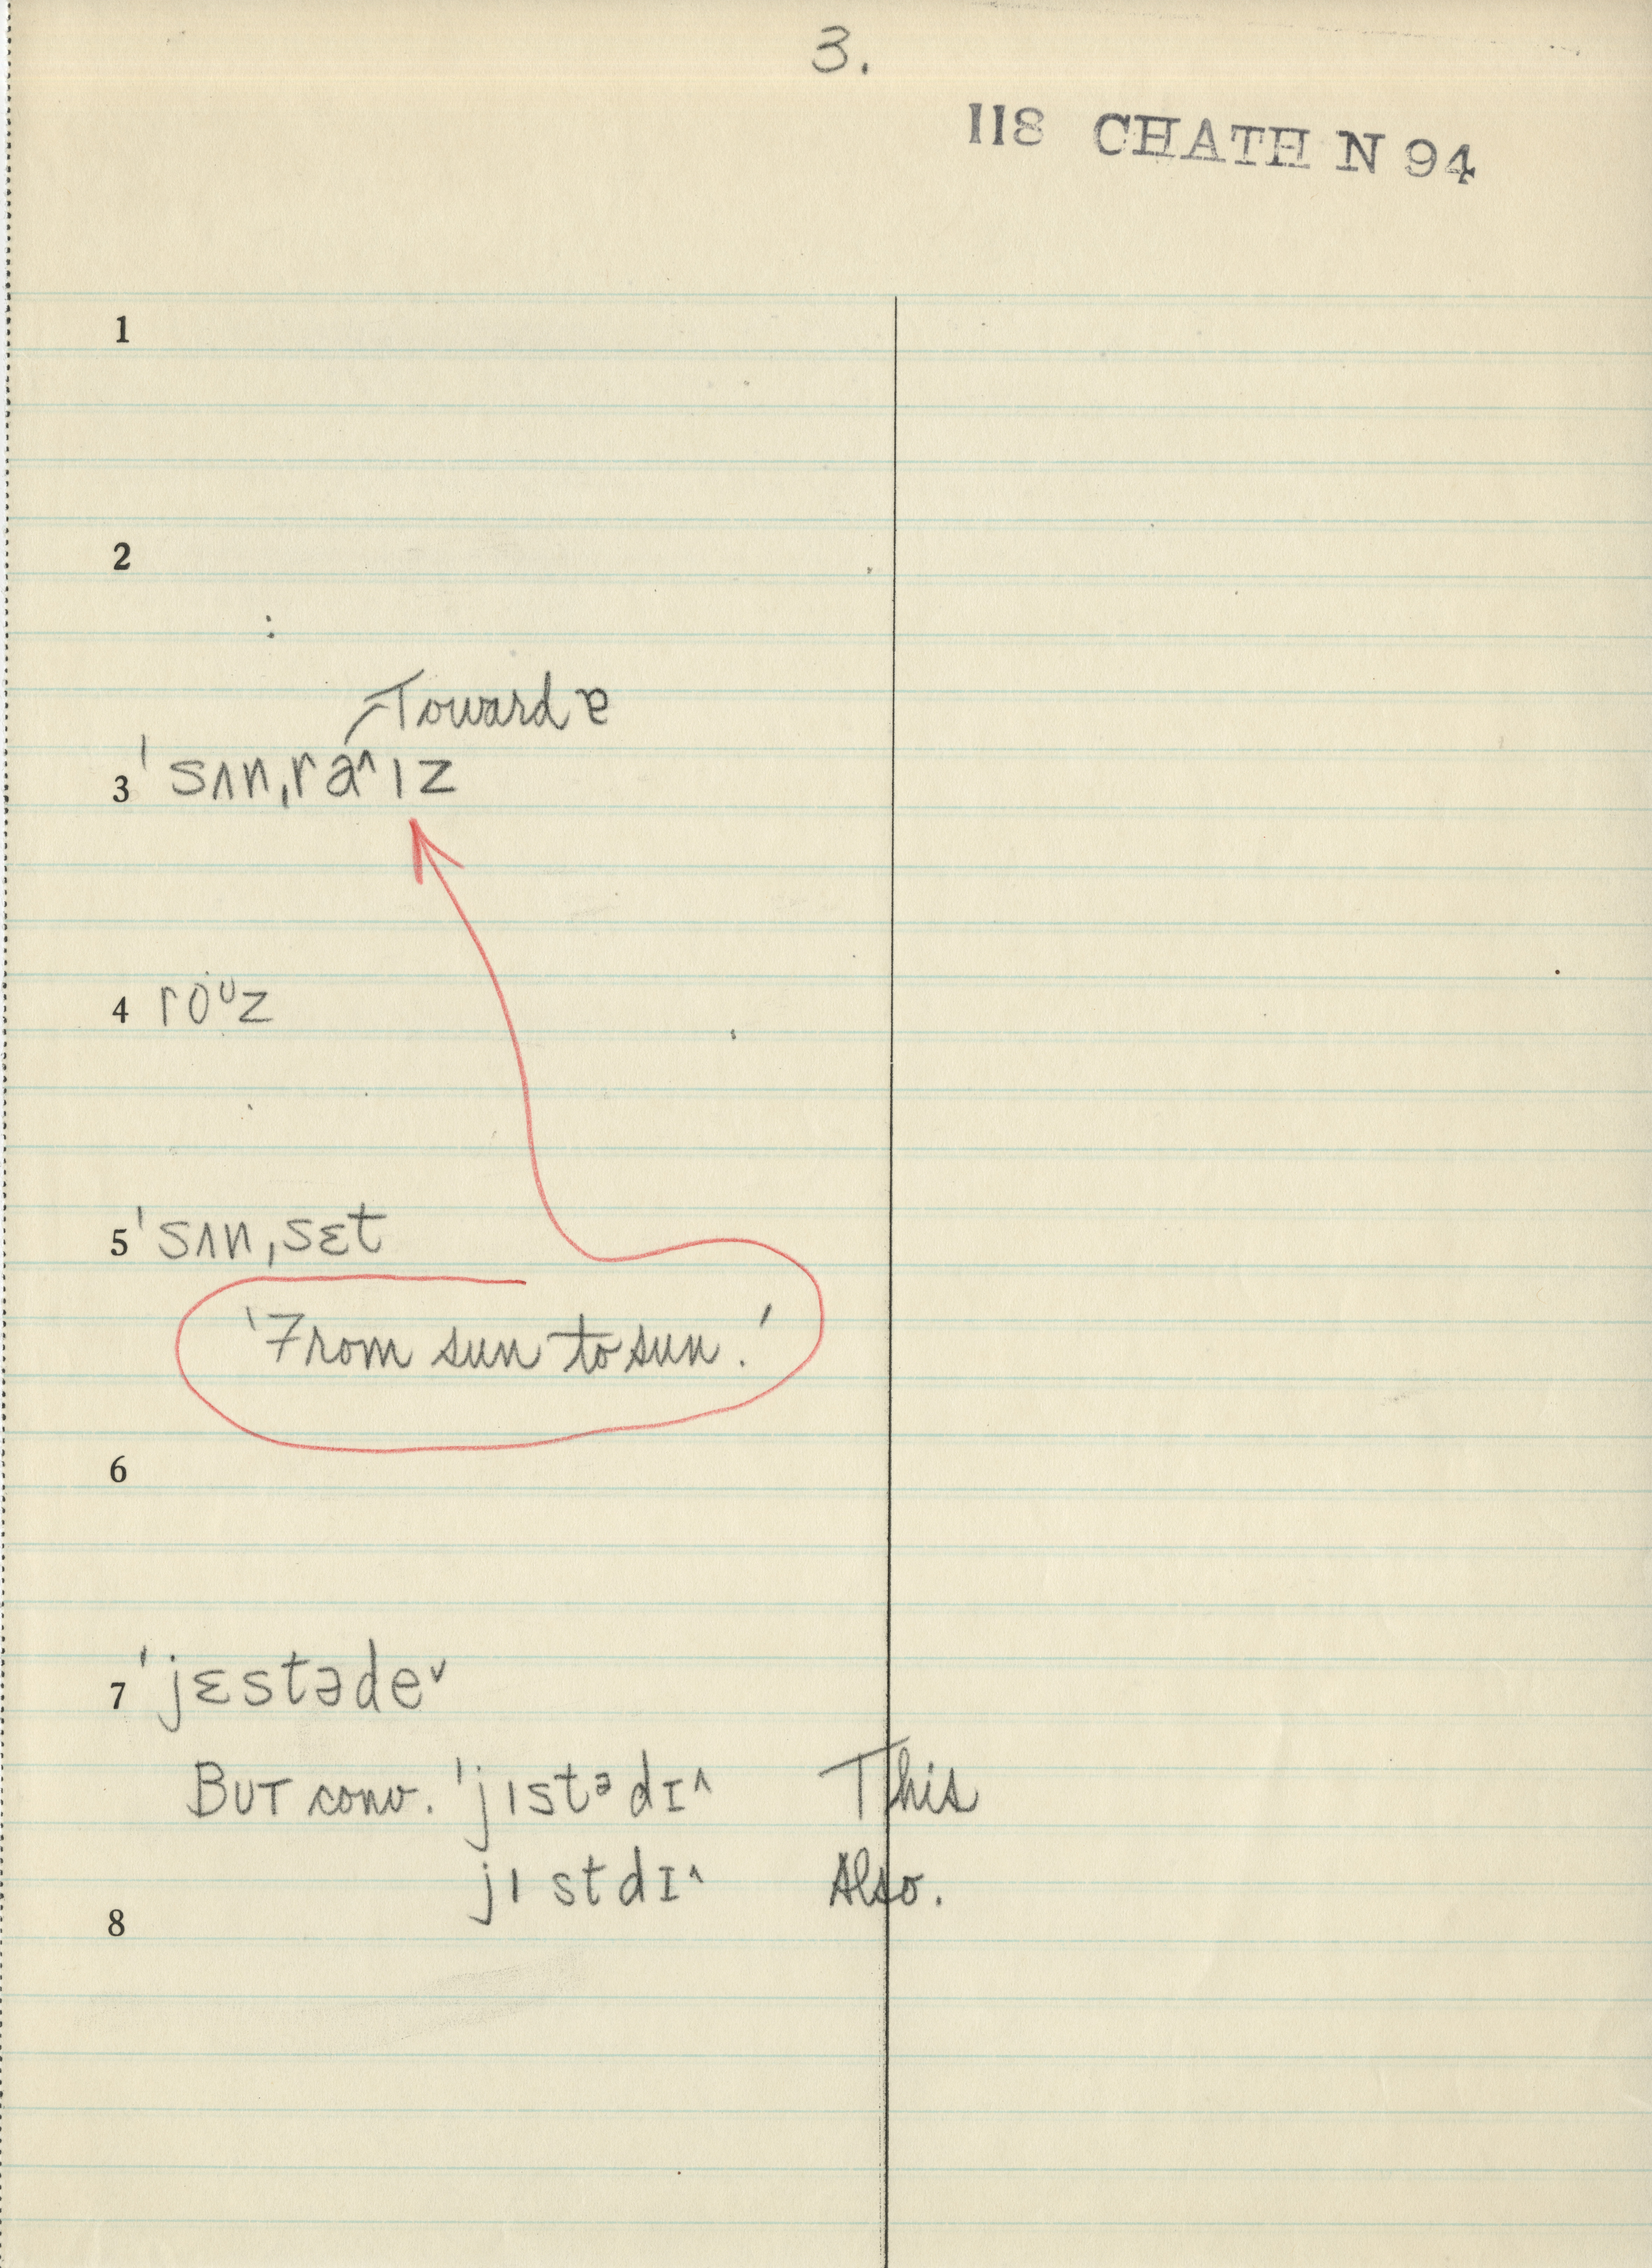 3.
118 CHATH N 94
1
2
Toward ɐ
3 ˈsʌnˌra˄ɪz
4 roᶷz
5 ˈsʌnˌsɛt
'From sun to sun.'
6
7 ˈjɛstəde˅
BUT conv. ˈjɪstᵊdɪ˄ This
jɪstdɪ˄ Also.
8